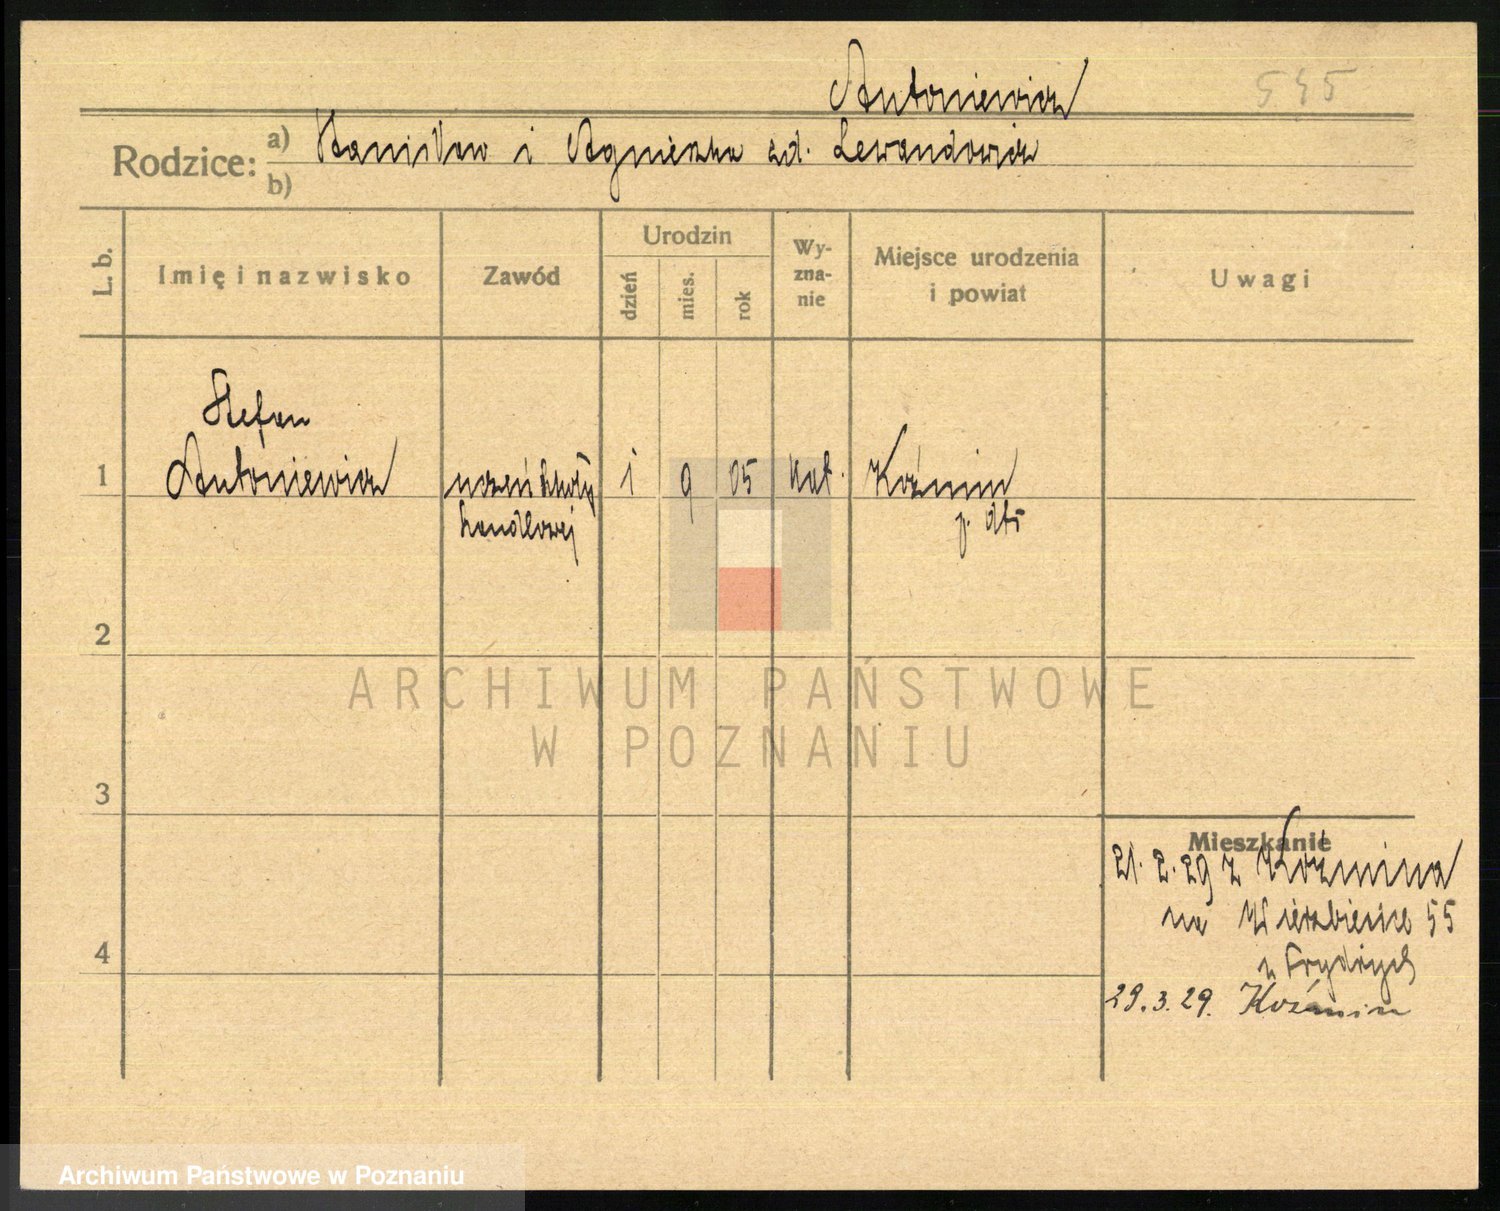 Antoniewicz
545
Rodzice: a) Stanisław i Agnieszka zd. Lewandowicz
b)
L. b.
Imię i nazwisko
Zawód
Urodzin
dzień
mies.
rok
Wy-
zna-
nie
Miejsce urodzenia
i powiat
Uwagi
Stefan
1 Antoniewicz uczeń szkoły 1 9 05 kat. Koźmin
handlowej p. dto
2
3
4
Mieszkanie
21. 2. 29 z Koźmina
na Wierzbięcice 55
u Frydrych
29. 3. 29. Koźmin
ARCHIWUM PAŃSTWOWE
W POZNANIU
Archiwum Państwowe w Poznaniu